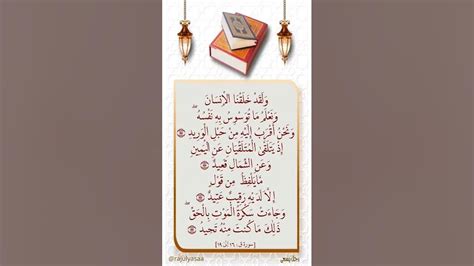 وَلَقَدْ خَلَقْنَا الْإِنسَانَ
وَنَعْلَمُ مَا تُوَسْوِسُ بِهِ نَفْسُهُ ۖ
وَنَحْنُ أَقْرَبُ إِلَيْهِ مِنْ حَبْلِ الْوَرِيدِ
إِذْ يَتَلَقَّى الْمُتَلَقِّيَانِ عَنِ الْيَمِينِ
وَعَنِ الشِّمَالِ قَعِيدٌ
مَا يَلْفِظُ مِن قَوْلٍ
إِلَّا لَدَيْهِ رَقِيبٌ عَتِيدٌ
وَجَاءَتْ سَكْرَةُ الْمَوْتِ بِالْحَقِّ ۖ
ذَٰلِكَ مَا كُنتَ مِنْهُ تَحِيدُ
[سورة ق: ١٦ إلى ١٩]
@rajulyasaa
رجل يسعى